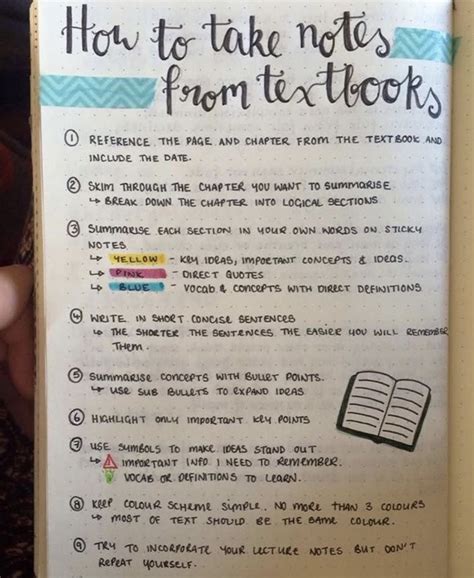 How to take notes
from textbooks
① REFERENCE THE PAGE AND CHAPTER FROM THE TEXTBOOK AND
INCLUDE THE DATE.
② SKIM THROUGH THE CHAPTER YOU WANT TO SUMMARISE
↳ BREAK DOWN THE CHAPTER INTO LOGICAL SECTIONS
③ SUMMARISE EACH SECTION IN YOUR OWN WORDS ON STICKY
NOTES
↳ YELLOW - KEY IDEAS, IMPORTANT CONCEPTS & IDEAS.
↳ PINK - DIRECT QUOTES
↳ BLUE - VOCAB & CONCEPTS WITH DIRECT DEFINITIONS
④ WRITE IN SHORT CONCISE SENTENCES
↳ THE SHORTER THE SENTENCES THE EASIER YOU WILL REMEMBER
THEM.
⑤ SUMMARISE CONCEPTS WITH BULLET POINTS.
↳ USE SUB BULLETS TO EXPAND IDEAS
⑥ HIGHLIGHT ONLY IMPORTANT KEY POINTS
⑦ USE SYMBOLS TO MAKE IDEAS STAND OUT
↳ IMPORTANT INFO I NEED TO REMEMBER.
VOCAB OR DEFINITIONS TO LEARN.
⑧ KEEP COLOUR SCHEME SIMPLE. NO MORE THAN 3 COLOURS
↳ MOST OF TEXT SHOULD BE THE SAME COLOUR.
⑨ TRY TO INCORPORATE YOUR LECTURE NOTES BUT DON'T
REPEAT YOURSELF.